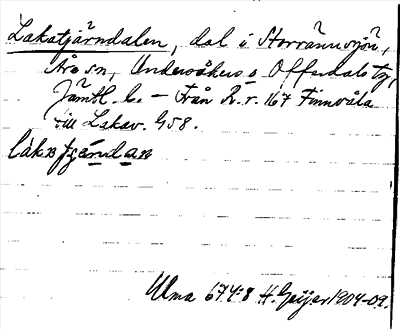 Lakatjärndalen, dal i Storrännsjön,
Åre sn, Undersåkers o Offerdals tg,
Jämtl. l. – Från R.r. 167 Finnvåla
till Lakav. 458.
Ulma 67.4:8 H. Geijer 1904-09.